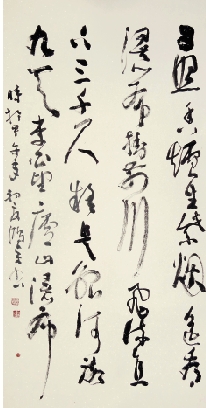 日照香爐生紫烟遙看
瀑布掛前川飛流直
下三千尺疑是銀河落
九天李白望廬山瀑布
時
甲午